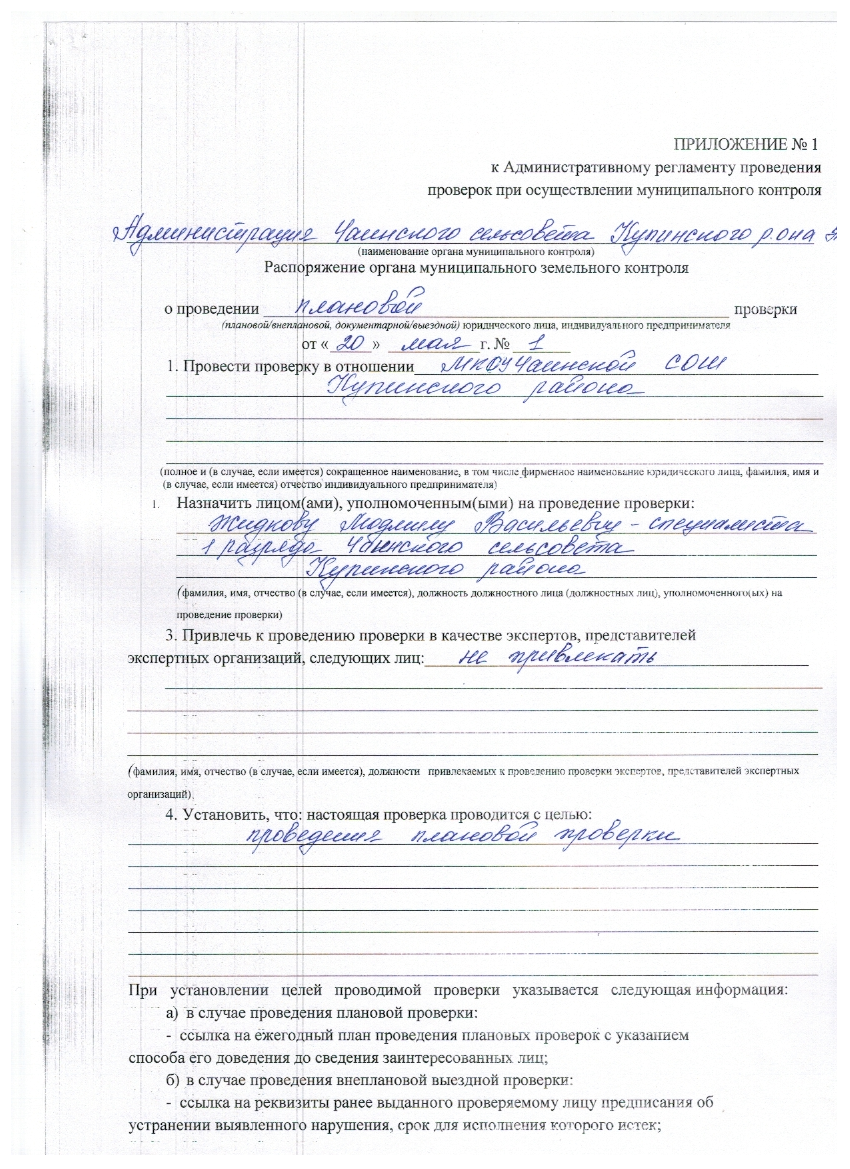 ПРИЛОЖЕНИЕ № 1
к Административному регламенту проведения
проверок при осуществлении муниципального контроля
Администрация Чаинского сельсовета Купинского р.она
(наименование органа муниципального контроля)
Распоряжение органа муниципального земельного контроля
о проведении плановой проверки
(плановой/внеплановой, документарной/выездной) юридического лица, индивидуального предпринимателя
от « 20 » мая г. № 1
1. Провести проверку в отношении МКОУ Чаинской СОШ
Купинского района
(полное и (в случае, если имеется) сокращенное наименование, в том числе фирменное наименование юридического лица, фамилия, имя и
(в случае, если имеется) отчество индивидуального предпринимателя)
1. Назначить лицом(ами), уполномоченным(ыми) на проведение проверки:
Жидкову Людмилу Васильевну - специалиста
1 разряда Чаинского сельсовета
Купинского района
(фамилия, имя, отчество (в случае, если имеется), должность должностного лица (должностных лиц), уполномоченного(ых) на
проведение проверки)
3. Привлечь к проведению проверки в качестве экспертов, представителей
экспертных организаций, следующих лиц: не привлекать
(фамилия, имя, отчество (в случае, если имеется), должности привлекаемых к проведению проверки экспертов, представителей экспертных
организаций)
4. Установить, что: настоящая проверка проводится с целью:
проведения плановой проверки
При установлении целей проводимой проверки указывается следующая информация:
а) в случае проведения плановой проверки:
- ссылка на ежегодный план проведения плановых проверок с указанием
способа его доведения до сведения заинтересованных лиц;
б) в случае проведения внеплановой выездной проверки:
- ссылка на реквизиты ранее выданного проверяемому лицу предписания об
устранении выявленного нарушения, срок для исполнения которого истек;